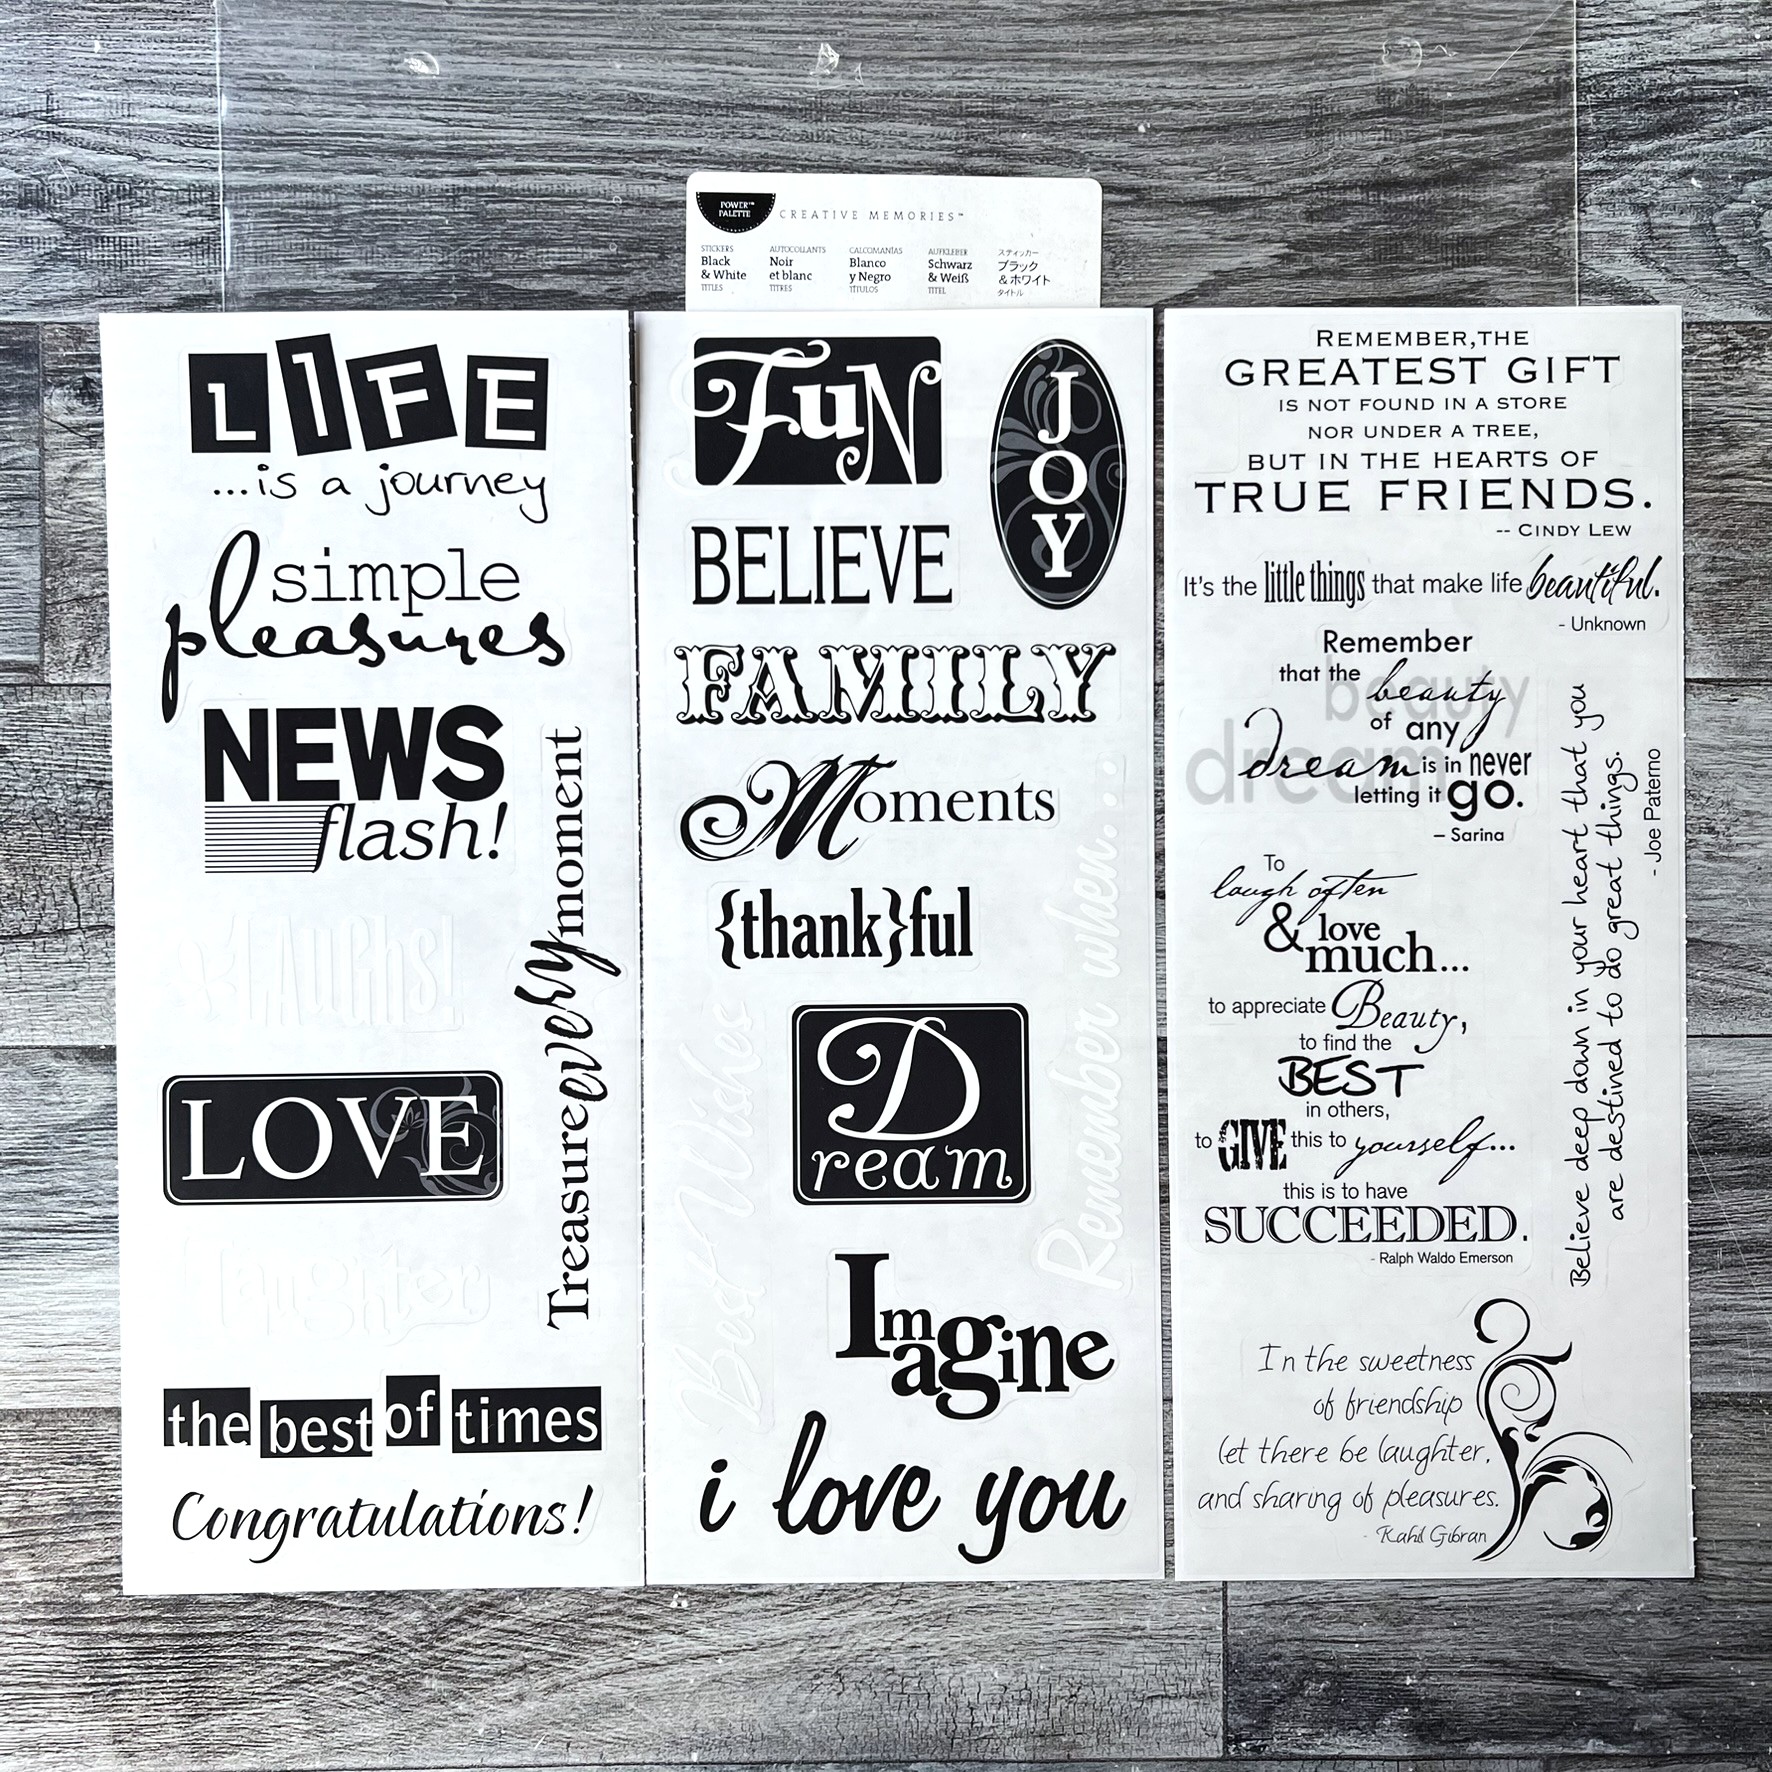 POWER™
PALETTE
CREATIVE MEMORIES™
STICKERS
Black
& White
TITLES
AUTOCOLLANTS
Noir
et blanc
TITRES
CALCOMANÍAS
Blanco
y Negro
TÍTULOS
AUFKLEBER
Schwarz
& Weiß
TITEL
ステッカー
ブラック
&ホワイト
タイトル
LIFE
...is a journey
simple
pleasures
NEWS
flash!
Treasure every moment
LAughs!
LOVE
Laughter
the best of times
Congratulations!
FuN
JOY
BELIEVE
FAMILY
Moments
{thank}ful
Remember when...
Best Wishes
Dream
Imagine
i love you
REMEMBER, THE
GREATEST GIFT
IS NOT FOUND IN A STORE
NOR UNDER A TREE,
BUT IN THE HEARTS OF
TRUE FRIENDS.
-- CINDY LEW
It's the little things that make life beautiful.
- Unknown
Remember
that the beauty
beauty
of any
dream is in never
dream
letting it go.
– Sarina
Believe deep down in your heart that you
are destined to do great things.
- Joe Paterno
To
laugh often
& love
much...
to appreciate Beauty,
to find the
BEST
in others,
to GIVE this to yourself...
this is to have
SUCCEEDED.
- Ralph Waldo Emerson
In the sweetness
of friendship
let there be laughter,
and sharing of pleasures.
- Kahil Gibran